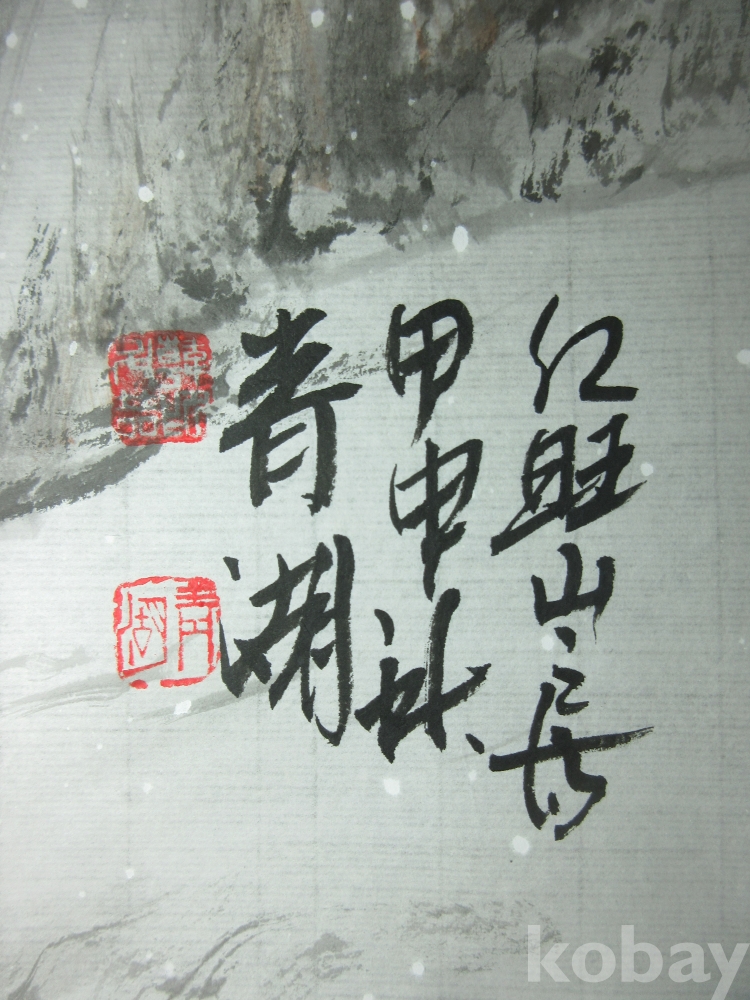 仁旺山房
甲申秋
青湖
kobay